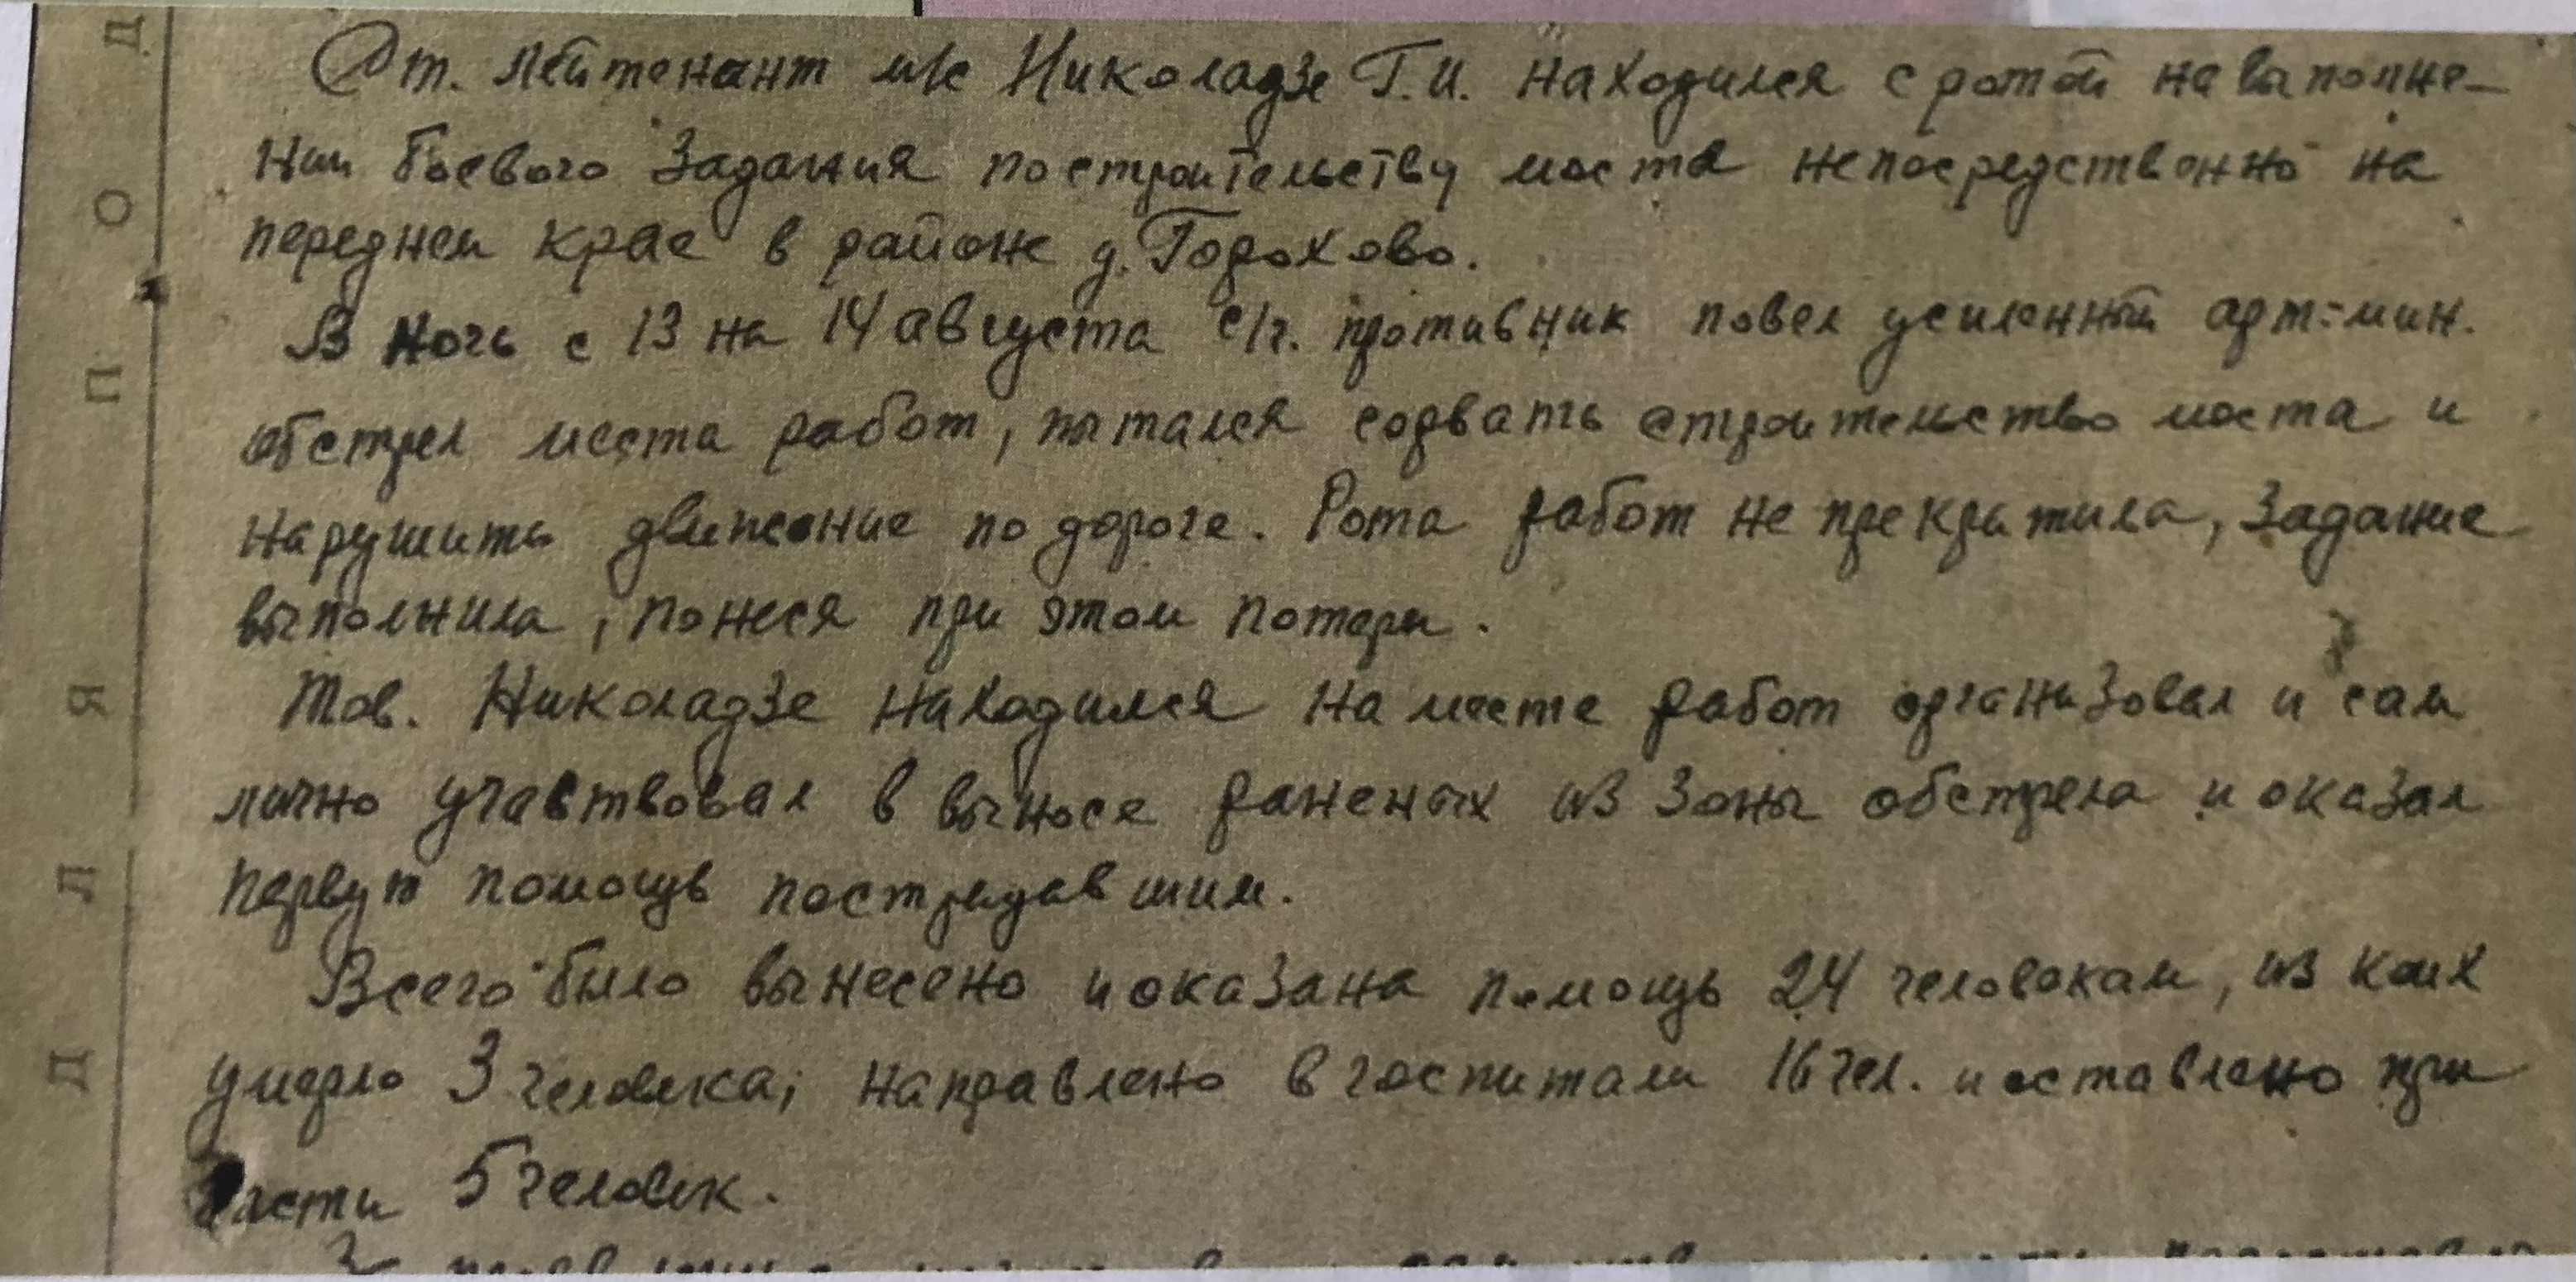 Ст. лейтенант м/с Николадзе Г.И. находился с ротой на выполне-
нии боевого задания по строительству моста непосредственно на
переднем крае в районе д. Горохово.
В ночь с 13 на 14 августа с/г. противник повел усиленный арт-мин.
обстрел места работ, пытался сорвать строительство моста и
нарушить движение по дороге. Рота работ не прекратила, задание
выполнила, понеся при этом потери.
Тов. Николадзе находился на месте работ организовал и сам
лично участвовал в выносе раненых из зоны обстрела и оказал
первую помощь пострадавшим.
Всего было вынесено и оказана помощь 24 человекам, из коих
умерло 3 человека; направлено в госпитали 16 чел. и оставлено при
части 5 человек.
За
Д
О
П
Я
Л
Д